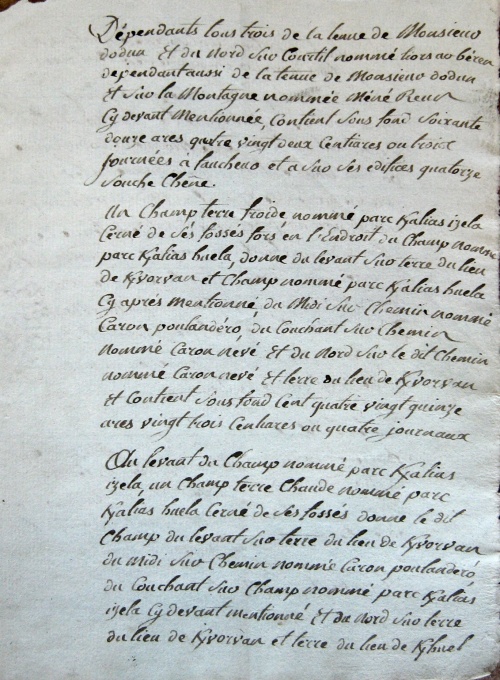 Dépendants tous trois de la tenue de Monsieur
dodun et du Nord sur Courtil nommé liors ar béren
dependant aussi de la tenue de Monsieur dodun
Et sur la Montagne nommée Méné
Cy devant Mentionnée, Contient sous fond Soixante
douze ares quatre vingt deux Centiares ou trois
journées à faucheur et a sur ses edifices quatorze
Souche Chêne.
Un Champ terre froide nommé parc Kalias izela
Cerné de Sés fossés fors en l'Endroit du Champ nommé
parc Kalias huela, donne du levant sur terre du lieu
de Kvorvan et Champ nommé parc Kalias huela
Cy aprés Mentionné, du Midi Sur Chemin nommé
Caron poulandéro, du Couchant Sur Chemin
nommé Caron nevé Et du Nord Sur le dit Chemin
nommé Caron nevé Et terre du lieu de Kvorvan
Et Contient Sous fond Cent quatre vingt quinze
ares vingt trois Centiares ou quatre journaux
Au levant du Champ nommé parc Kalias
izela, un Champ terre Chaude nommé parc
Kalias huela Cerné de Ses fossés donne le dit
Champ du levant Sur terre du lieu de Kvorvan
du Midi Sur Chemin nommé Caron poulanderó,
du Couchant Sur Champ nommé parc Kalias
izela Cy devant mentionné Et du Nord Sur terre
du lieu de Kvorvan et terre du lieu de